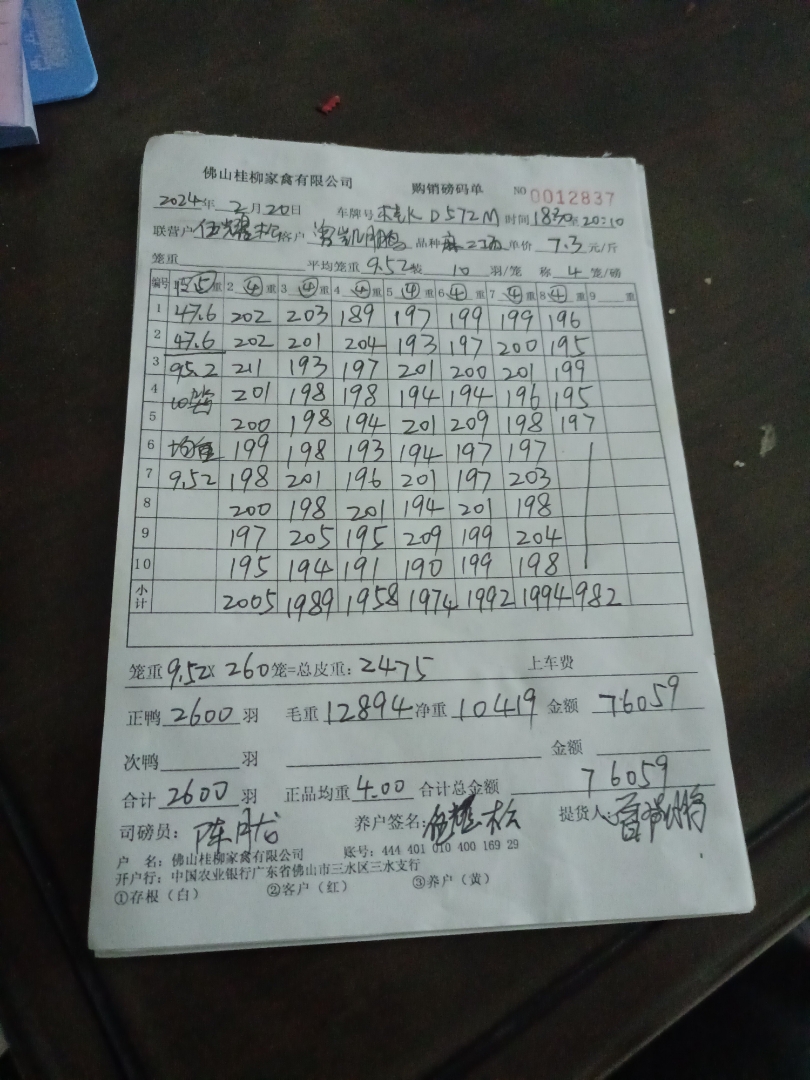 佛山桂柳家禽有限公司 购销磅码单 NO 0012837
2024年 2月20日 车牌号 桂K D572M 时间 1830至20:10
联营户 伍耀松 客户 品种 单价 7.3 元/斤
笼重 平均笼重 9.52 装 10 羽/笼 称 4 笼/磅
编号 1 ⑤ 重 2 ④ 重 3 ④ 重 4 ④ 重 5 ④ 重 6 ④ 重 7 ④ 重 8 ④ 重 9 重
1 47.6 202 203 189 197 199 199 196
2 47.6 202 201 204 193 197 200 195
3 95.2 211 193 197 201 200 201 199
4 10 201 198 198 194 194 196 195
5 200 198 194 201 209 198 197
6 均重 199 198 193 194 197 197
7 9.52 198 201 196 201 197 203
8 200 198 201 194 201 198
9 197 205 195 209 199 204
10 195 194 191 190 199 198
小计 2005 1989 1958 1974 1992 1994 982
笼重 9.52 x 260 笼=总皮重: 2475 上车费
正鸭 2600 羽 毛重 12894 净重 10419 金额 76059
次鸭 羽 金额
合计 2600 羽 正品均重 4.00 合计总金额 76059
司磅员: 陈月龙 养户签名: 伍耀松 提货人:
户 名: 佛山桂柳家禽有限公司 账号: 444 401 010 400 169 29
开户行: 中国农业银行广东省佛山市三水区三水支行
①存根（白） ②客户（红） ③养户（黄）